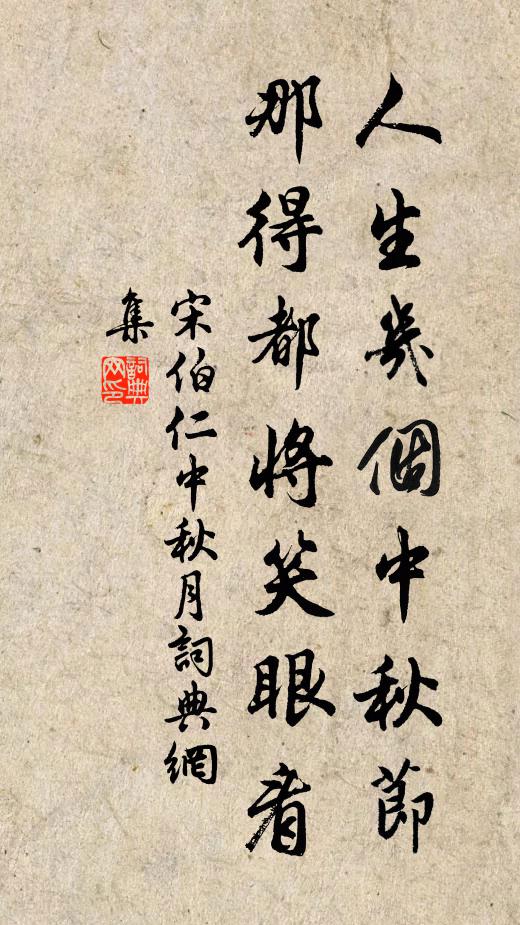 人生幾個中秋節
那得都將笑眼看
宋伯仁中秋月詞典網
集
詞典
网印